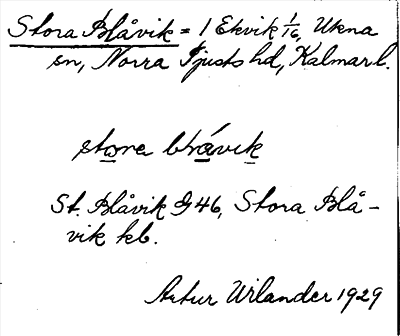 Stora Blåvik = 1 Ekvik 1/16, Ukna
sn, Norra Tjusts hd, Kalmar l.
stora blåvik
St. Blåvik G 46, Stora Blå-
vik kb.
Artur Wilander 1929